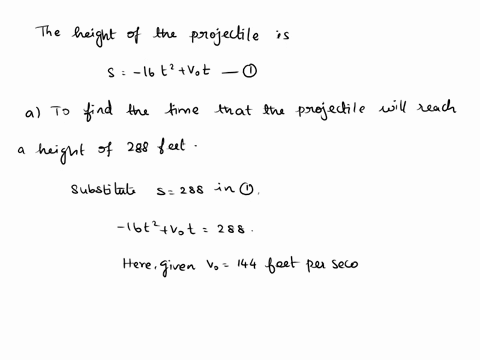 The height of the projectile is
s = -16t² + v₀t — ①
a) To find the time that the projectile will reach
a height of 288 feet.
Substitute s = 288 in ①.
-16t² + v₀t = 288.
Here, given v₀ = 144 feet per seco